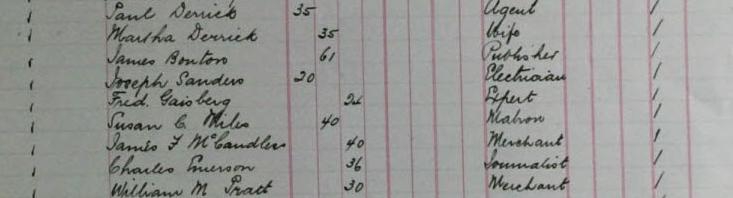 1 Paul Derrick 35 Agent 1
1 Martha Derrick 35 Wife 1
1 James Bouton 61 Publisher 1
1 Joseph Sanders 20 Electrician 1
1 Fred. Gaisberg Expert 1
1 Susan C. Miles 40 Matron 1
1 James F McCandless 40 Merchant 1
1 Charles Emerson 36 Journalist 1
1 William M Pratt 30 Merchant 1